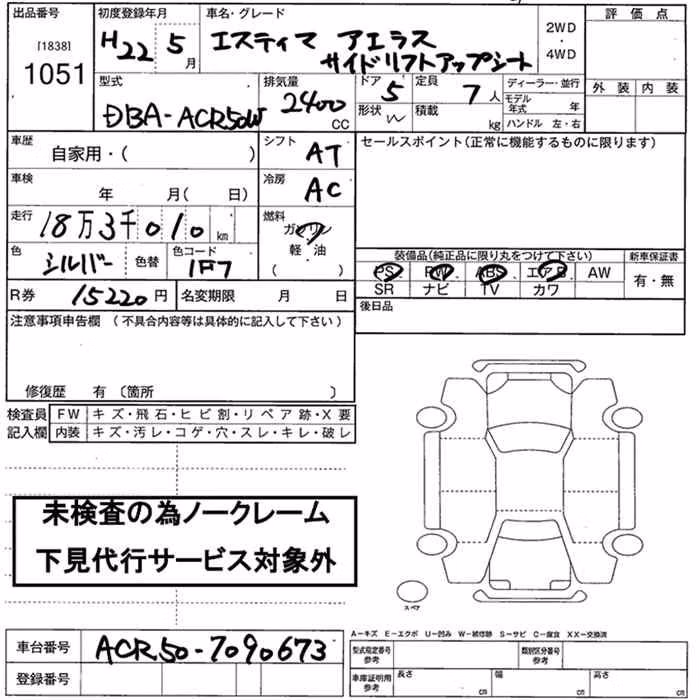 出品番号 初度登録年月 車名・グレード 評価点
[1838] 1051
H22 5月
エスティマ アエラス
サイドリフトアップシート
2WD ・ 4WD
外装 内装
型式 DBA-ACR50W
排気量 2400 CC
ドア 5
形状 W
定員 7人
積載 kg
ディーラー・並行
モデル年式 年
ハンドル 左・右
車歴 自家用・( )
シフト AT
セールスポイント(正常に機能するものに限ります)
車検 年 月( 日)
冷房 AC
走行 18万3千010km
燃料 ガソリン
軽・油
( )
色 シルバー 色替
色コード 1F7
装備品(純正品に限り丸をつけて下さい) 新車保証書
PS PW ABS エアB AW 有・無
SR ナビ TV カワ
R券 15220円 名変期限 月 日
後日品
注意事項申告欄 (不具合内容等は具体的に記入して下さい)
修復歴 有 〔箇所 〕
検査員 FW キズ・飛石・ヒビ割・リペア跡・X要
記入欄 内装 キズ・汚レ・コゲ・穴・スレ・キレ・破レ
未検査の為ノークレーム
下見代行サービス対象外
スペア
A-キズ E-エクボ U-凹み W-補修跡 S-サビ C-腐食 XX-交換済
車台番号 ACR50-7090673
登録番号
型式指定番号 参考
類別区分番号 参考
車庫証明用 参考
長さ cm 幅 cm 高さ cm